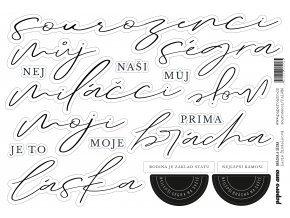 sourozenci
můj ségra
NEJ NAŠI MŮJ
miláčci sloní
moji PRIMA
JE TO MOJE brácha
RODINA JE ZÁKLAD STÁTU NEJLEPŠÍ KÁMOŠI
láska